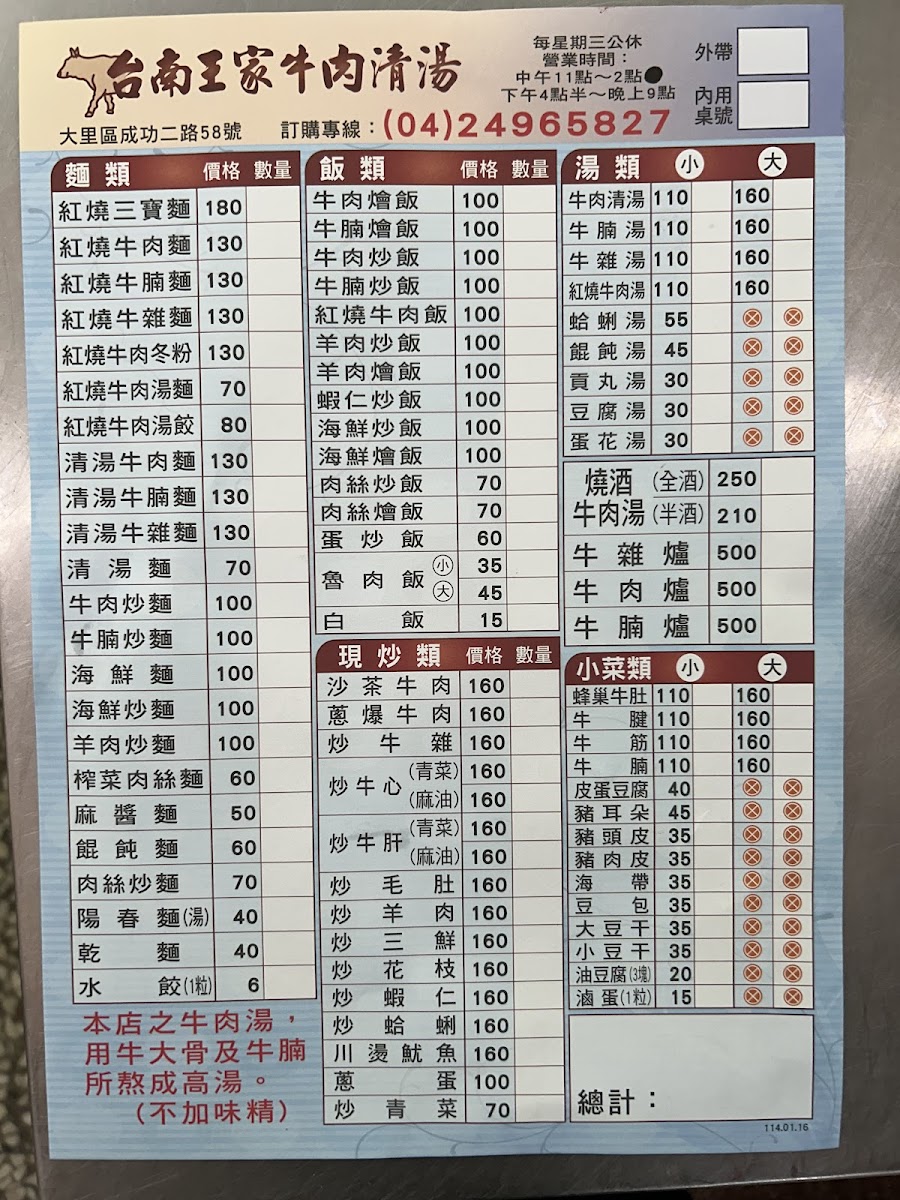 台南王家牛肉清湯
每星期三公休
營業時間：
中午11點～2點
下午4點半～晚上9點
外帶
內用
桌號
大里區成功二路58號
訂購專線：(04)24965827
麵類 價格 數量
紅燒三寶麵 180
紅燒牛肉麵 130
紅燒牛腩麵 130
紅燒牛雜麵 130
紅燒牛肉冬粉 130
紅燒牛肉湯麵 70
紅燒牛肉湯餃 80
清湯牛肉麵 130
清湯牛腩麵 130
清湯牛雜麵 130
清湯麵 70
牛肉炒麵 100
牛腩炒麵 100
海鮮麵 100
海鮮炒麵 100
羊肉炒麵 100
榨菜肉絲麵 60
麻醬麵 50
餛飩麵 60
肉絲炒麵 70
陽春麵(湯) 40
乾麵 40
水餃(1粒) 6
本店之牛肉湯，
用牛大骨及牛腩
所熬成高湯。
(不加味精)
飯類 價格 數量
牛肉燴飯 100
牛腩燴飯 100
牛肉炒飯 100
牛腩炒飯 100
紅燒牛肉飯 100
羊肉炒飯 100
羊肉燴飯 100
蝦仁炒飯 100
海鮮炒飯 100
海鮮燴飯 100
肉絲炒飯 70
肉絲燴飯 70
蛋炒飯 60
魯肉飯 小 35
大 45
白飯 15
現炒類 價格 數量
沙茶牛肉 160
蔥爆牛肉 160
炒牛雜 160
炒牛心 (青菜) 160
(麻油) 160
炒牛肝 (青菜) 160
(麻油) 160
炒毛肚 160
炒羊肉 160
炒三鮮 160
炒花枝 160
炒蝦仁 160
炒蛤蜊 160
川燙魷魚 160
蔥蛋 100
炒青菜 70
湯類 小 大
牛肉清湯 110 160
牛腩湯 110 160
牛雜湯 110 160
紅燒牛肉湯 110 160
蛤蜊湯 55
餛飩湯 45
貢丸湯 30
豆腐湯 30
蛋花湯 30
燒酒 (全酒) 250
牛肉湯 (半酒) 210
牛雜爐 500
牛肉爐 500
牛腩爐 500
小菜類 小 大
蜂巢牛肚 110 160
牛腱 110 160
牛筋 110 160
牛腩 110 160
皮蛋豆腐 40
豬耳朵 45
豬頭皮 35
豬肉皮 35
海帶 35
豆包 35
大豆干 35
小豆干 35
油豆腐(3塊) 20
滷蛋(1粒) 15
總計：
114.01.16